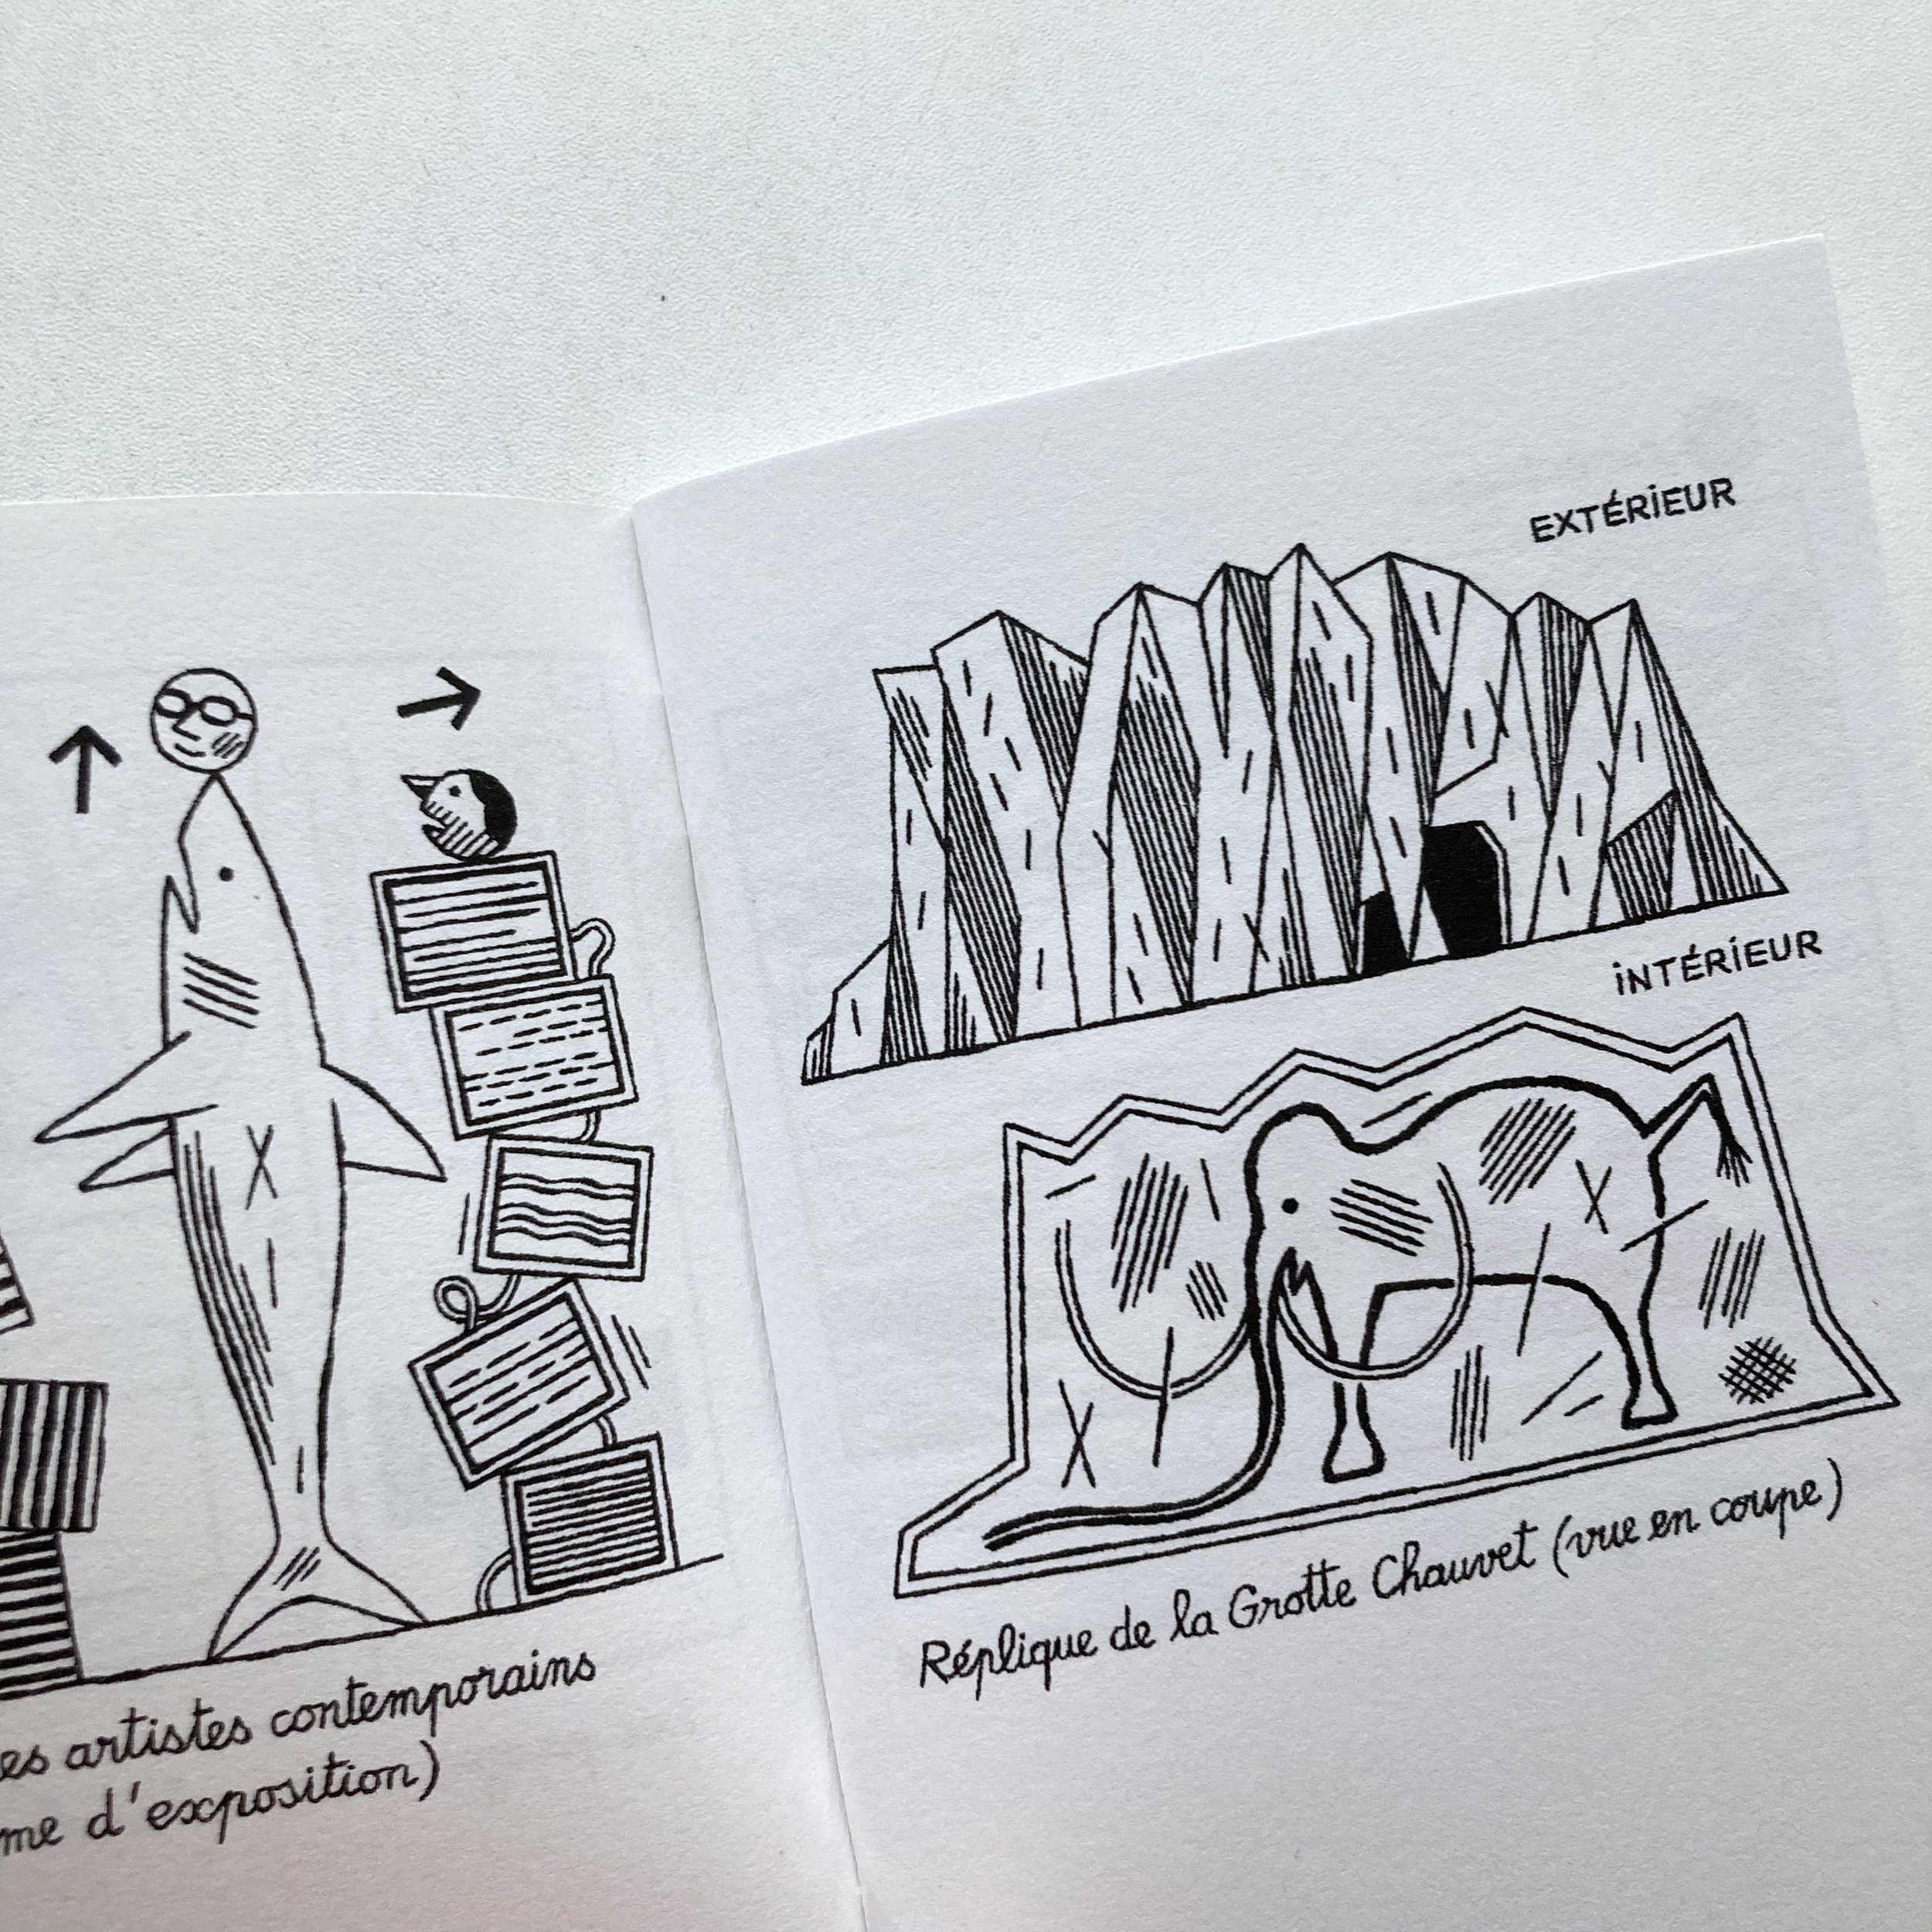 artistes contemporains
d'exposition)
EXTÉRIEUR
INTÉRIEUR
Réplique de la Grotte Chauvet (vue en coupe)